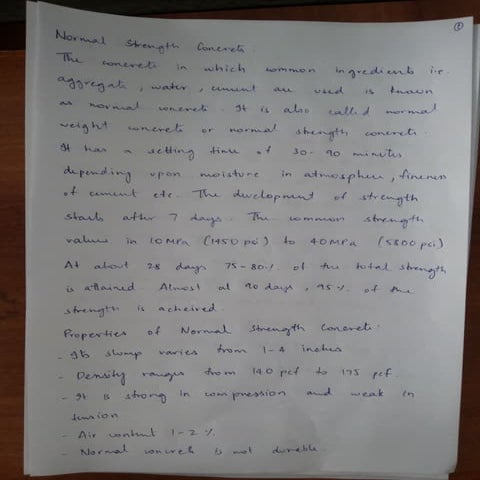 1
Normal Strength Concrete:
The concrete in which common ingredients i.e.
aggregate, water, cement are used is known
as normal concrete. It is also called normal
weight concrete or normal strength concrete.
It has a setting time of 30-90 minutes
depending upon moisture in atmosphere, fineness
of cement etc. The development of strength
starts after 7 days. The common strength
values in 10MPa (1450 psi) to 40MPa (5800 psi)
At about 28 days 75-80% of the total strength
is attained. Almost at 90 days, 95% of the
strength is acheived.
Properties of Normal Strength Concrete:
- Its slump varies from 1-4 inches
- Density ranges from 140 pcf to 175 pcf.
- It is strong in compression and weak in
tension
- Air content 1-2%.
- Normal concrete is not durable.